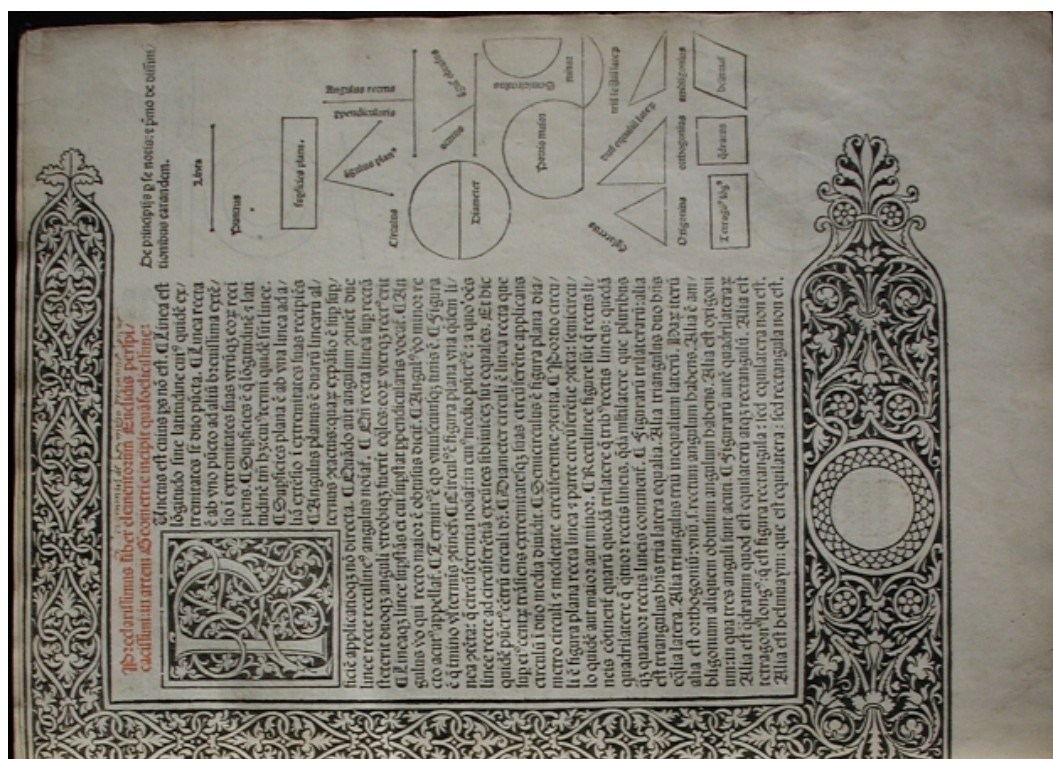 Preclarissimus liber elementorum Euclidis perspi/
cacissimi: in artem Geometrie incipit quāfoelicissime:
Punctus est cuius ps nō est. ¶ Linea est
lōgitudo sine latitudine cuiꝰ quidē ex/
tremitates sūt duo pūcta. ¶ Linea recta
ē ab vno pūcto ad aliū breuissima extē/
sio ī extremitates suas vtrūqꝫ eoꝝ reci
piens. ¶ Supficies ē q̄ lōgitudinē ⁊ lati
tudinē tm̄ hꝫ: cuiꝰ termi quidē sūt linee.
¶ Supficies plana ē ab vna linea ad a/
liā extēsio ī extremitates suas recipiēs
¶ Angulus planus ē duarū linearū al/
ternus ꝯtactus: quaꝝ expāsio ē sup sup/
ficiē applicatioqꝫ nō directa. ¶ Quādo aut angulum ꝯtinēt due
linee recte rectilineꝰ angulus noīat̄. ¶ Qn̄ recta linea sup rectā
steterit duoqꝫ anguli vtrobiqꝫ fuerit eq̄les: eoꝝ vterqꝫ rectꝰ erit
¶ Lineaqꝫ linee supstās ei cui supstat ppendicularis vocat̄. ¶ An
gulus vo qui recto maior ē obtusus dicit̄. ¶ Angulꝰ vo minor re
cto acutꝰ appellat̄. ¶ Terminꝰ ē qd̄ vniuscuiusqꝫ finis ē. ¶ Figura
ē q̄ tmino vl terminis ꝯtinet̄. ¶ Circulꝰ ē figura plana vna qdem li/
nea ꝯtēta: q̄ circūferentia noīat̄: in cuiꝰ medio pūctꝰ ē: a quo oēs
linee recte ad circūferētiā exeūtes sibiinuicē sūt equales. Et hic
quidē pūctꝰ cētrū circuli dr̄. ¶ Diameter circuli ē linea recta que
sup eiꝰ centꝝ trāsiens extremitatesqꝫ suas circūferētie applicans
circulū ī duo media diuidit. ¶ Semicirculus ē figura plana dia/
metro circuli ⁊ medietate circūferentie ꝯtenta. ¶ Portio circu/
li ē figura plana recta linea ⁊ parte circūferētie ꝯtēta: semicircu/
lo quidē aut maior aut minor. ¶ Rectilinee figure sūt q̄ rectis li/
neis cōtinent̄ quarū quedā trilatere q̄ tribꝰ rectis lineis: quedā
quadrilatere q̄ qtuor rectis lineis. qdā mltilatere que pluribus
qꝫ quatuor rectis lineis continent̄. ¶ Figurarū trilaterarū: alia
est triangulus hn̄s tria latera equalia. Alia triangulus duo hn̄s
eq̄lia latera. Alia triangulus triū inequalium laterū. Haꝝ iterū
alia est orthogoniū: vnū .s. rectum angulum habens. Alia ē am/
bligonium aliquem obtusum angulum habens. Alia est oxigoni
um: in qua tres anguli sunt acuti. ¶ Figurarū autē quadrilateraꝝ
Alia est qdratum quod est equilaterū atqꝫ rectangulū. Alia est
tetragonꝰ longꝰ: q̄ est figura rectangula: sed equilatera non est.
Alia est helmuaym: que est equilatera: sed rectangula non est.
De principijs p se notis: ⁊ pmo de diffini/
tionibus earandem.
Linea
Punctus
supficies plana.
Angulus rectus
ppendicularis
āgulus planꝰ
acutus
āglꝰ obtusus
Circulus
Diameter
Portio maior
Semicirculus
minor
tri īeq̄liū laterꝝ
duū equaliū laterꝝ
Eqlaterus
Oxigonius
orthogonius
ambligonius
Tetragoꝰ lōgꝰ
q̄dratus